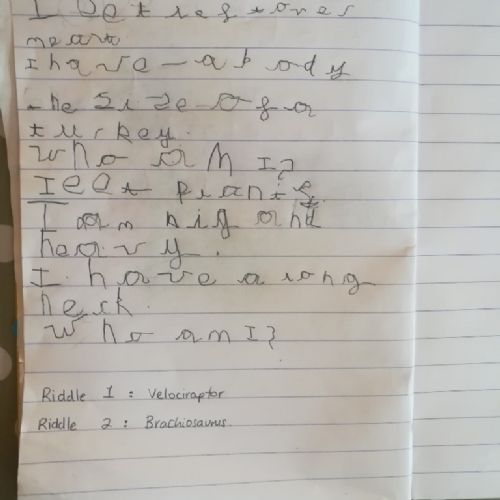 I
meat
I have - a body
the size of a
turkey.
who am I?
I eat plants
I am big and
heavy.
I have a long
neck.
Who am I?
Riddle 1 : Velociraptor
Riddle 2 : Brachiosaurus.